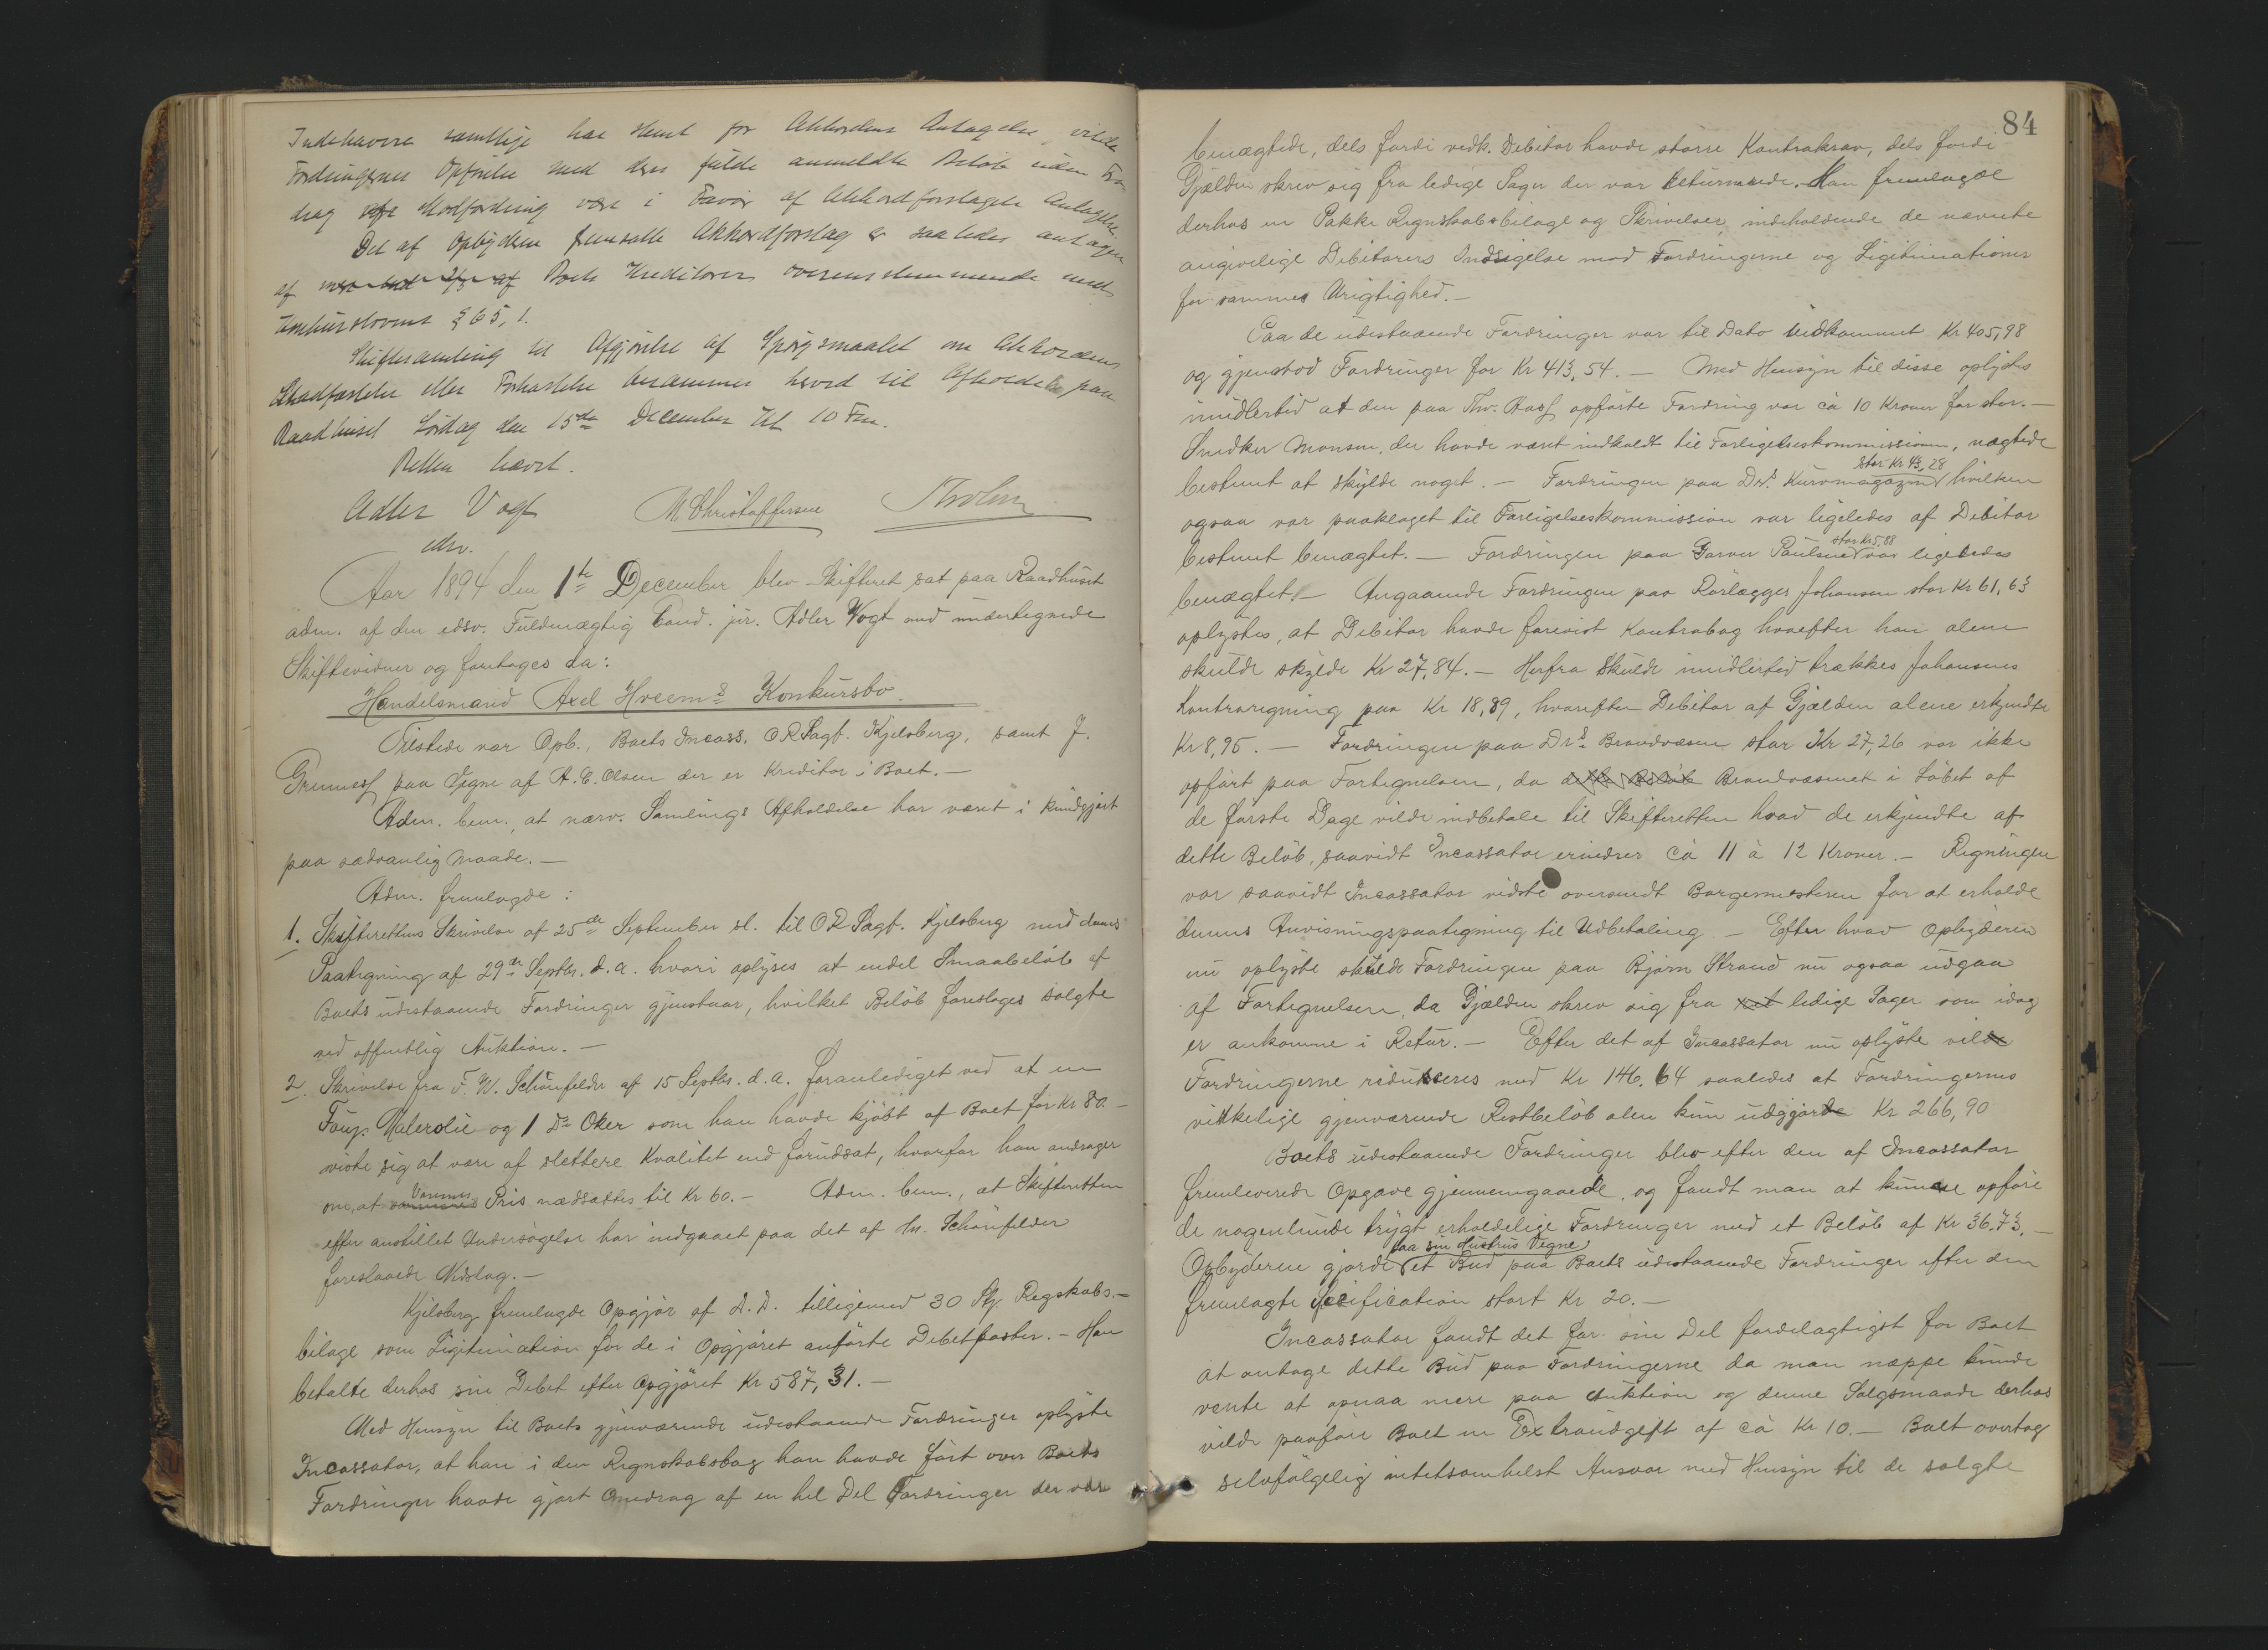 Indehavere samtlige har stemt for Akkordens Antagelse, vilde
Fordringernes Opførelse med deres fulde anmeldte Beløb uden Fra-
drag af Modfordring være i Favør af Akkordforslagets Antagelse.
Det af Opbyderen fremsatte Akkordforslag er saaledes antaget
af mere end 2/3 af Boets Kreditorer overensstemmende med
Konkurslovens § 65, 1.
Skiftesamling til Afgjørelse af Spørgsmaalet om Akkordens
Stadfæstelse eller Forkastelse berammes herved til Afholdelse paa
Raadhuset Lørdag den 15de December Kl 10 Fm.
Retten hævet.
Adler Vogt M Christoffersen Tholm
edsv.
Aar 1894 den 1ste December blev Skifteret sat paa Raadhuset
adm. af den edsv. Fuldmægtig Cand. jur. Adler Vogt med undertegnede
Skiftevidner og foretoges da:
Handelsmand Axel Hreems Konkursbo.
Tilstede var Opb., Boets Incass. O R Sagf. Kjelsberg, samt J.
paa Vegne af A. C. Olsen der er Kreditor i Boet. —
Adm. bem., at nærv. Samlings Afholdelse har været i kundgjort
paa sædvanlig Maade. —
Adm. fremlagde:
1. Skifterettens Skrivelse af 25de September sl. til O R Sagf. Kjelsberg med dennes
Paategning af 29de Septbr. d. a. hvori oplyses at endel Smaabeløb af
Boets udestaaende Fordringer gjenstaar, hvilket Beløb foreslages solgte
ved offentlig Auktion. —
2. Skrivelse fra F. W. Schönfelder af 15 Septbr. d. a. foranlediget ved at en
Malerolie og 1 Do Oker som han havde kjøbt af Boet for Kr 80. —
viste sig at være af slettere Kvalitet end forudsat, hvorfor han andrager
om, at sammes Varenes Pris nedsættes til Kr 60. — Adm. bem., at Skifteretten
efter anstillet Undersøgelse har indgaaet paa det af Hr. Schönfelder
foreslaaede Nedslag. —
Kjelsberg fremlagde Opgjør af D. D. tilligemed 30 Stk. Regskabs-
bilage som Legitimation for de i Opgjøret anførte Debetposter. — Han
betalte derhos sin Debet efter Opgjøret Kr 587,31. —
Med Hensyn til Boets gjenværende udestaaende Fordringer oplyste
Incassator, at han i den Regnskabsbog han havde ført over Boets
Fordringer havde gjort Omdrag af en hel Del Fordringer der var
84
benægtede, dels fordi vedk. Debitor havde større Kontrakrav, dels fordi
Gjælden skrev sig fra ledige Sager der var returnerede. Han fremlagde
derhos en Pakke Regnskabsbilage og Skrivelser indeholdende de nævnte
angivelige Debitorers Indsigelse mod Fordringerne og Legitimationer
for sammes Urigtighed. —
Paa de udestaaende Fordringer var til Dato indkommet Kr 405,98
og gjenstod Fordringer for Kr 413,54. — Med Hensyn til disse oplystes
imidlertid at den paa Thv. opførte Fordring var ca 10 Kroner for stor. —
Snedker Monsen, der havde været indkaldt til Forligelseskommissionen, nægtede
bestemt at skylde noget. — Fordringen paa Drs. Kurvmagazin stor Kr 43,28 hvilken
ogsaa var paaklaget til Forligelseskommission var ligeledes af Debitor
bestemt benægtet. — Fordringen paa Garver Paulsen stor Kr 5,88 var ligeledes
benægtet — Angaaende Fordringen paa Rørlægger Johansen stor Kr 61,63
oplystes, at Debitor havde forevist Kontrabog hvorefter han alene
skulde skylde Kr 27,84. — Herfra skulde imidlertid trækkes Johansens
Kontraregning paa Kr 18,89, hvorefter Debitor af Gjælden alene erkjendte
Kr 8,95. — Fordringen paa Drs. Brandvæsen stor Kr 27,26 var ikke
opført paa Fortegnelsen, da dette Beløb Brandvæsenet i Løbet af
de første Dage vilde indbetale til Skifteretten hvad de erkjendte af
dette Beløb, saavidt Incassator erindrer ca 11 à 12 Kroner. — Regningen
var saavidt Incassator vidste oversendt Borgermesteren for at erholde
dennes Anvisningspaategning til Udbetaling. — Efter hvad Opbyderen
nu oplyste skulde Fordringen paa Bjørn Strand nu ogsaa udgaa
af Fortegnelsen, da Gjælden skrev sig fra ledige Sager som idag
er ankomne i Retur. — Efter det af Incassator nu oplyste vilde
Fordringerne reduceres med Kr 146.64 saaledes at Fordringernes
virkelige gjenværende Restbeløb alene kun udgjorde Kr 266,90
Boets udestaaende Fordringer blev efter den af Incassator
fremleverede Opgave gjennemgaaede, og fandt man at kunne opføre
de nogenlunde trygt erholdelige Fordringer med et Beløb af Kr 36.73. —
Opbyderen gjorde paa sin Hustrus Vegne et Bud paa Boets udestaaende Fordringer efter den
fremlagte Specification stort Kr 20. —
Incassator fandt det for sin Del fordelagtigst for Boet
at antage dette Bud paa Fordringerne da man neppe kunde
vente at opnaa mere paa Auktion og denne Salgsmaade derhos
vilde paaføre Boet en Extraudgift af ca Kr 10. — Boet overtog
selvfølgelig intetsomhelst Ansvar med Hensyn til de solgte